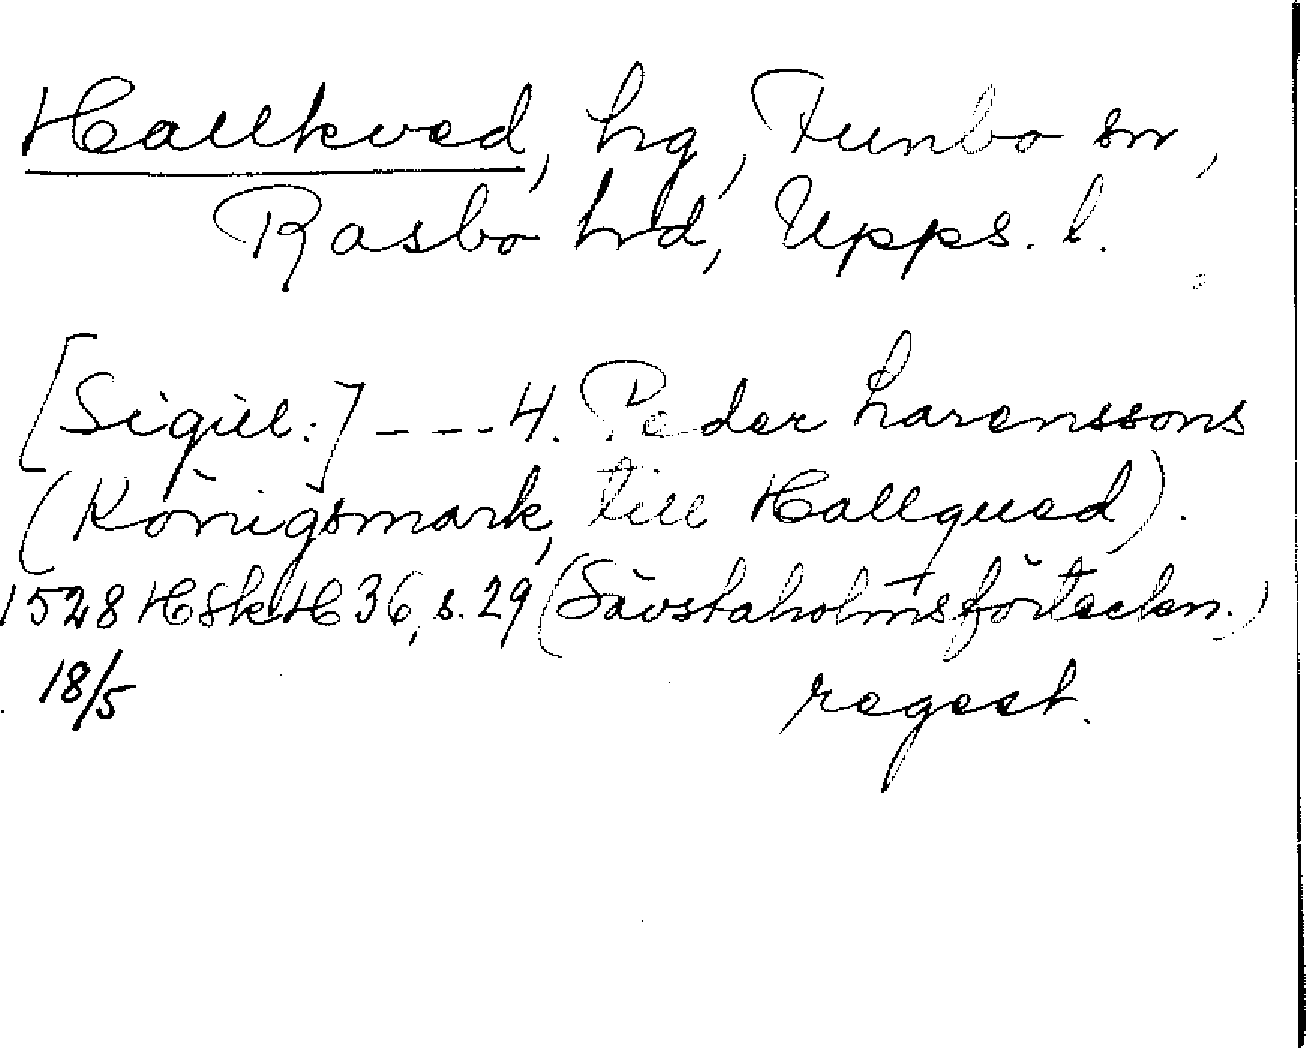 Hallkved, hg, Funbo sn,
Rasbo hd, Upps. l.
[Sigill:] --- 4. Peder Larenssons
(Königsmark, till Hallqued).
1528 HSkH 36, s. 29 (Sävstaholmsförteckn.)
18/5 regest.